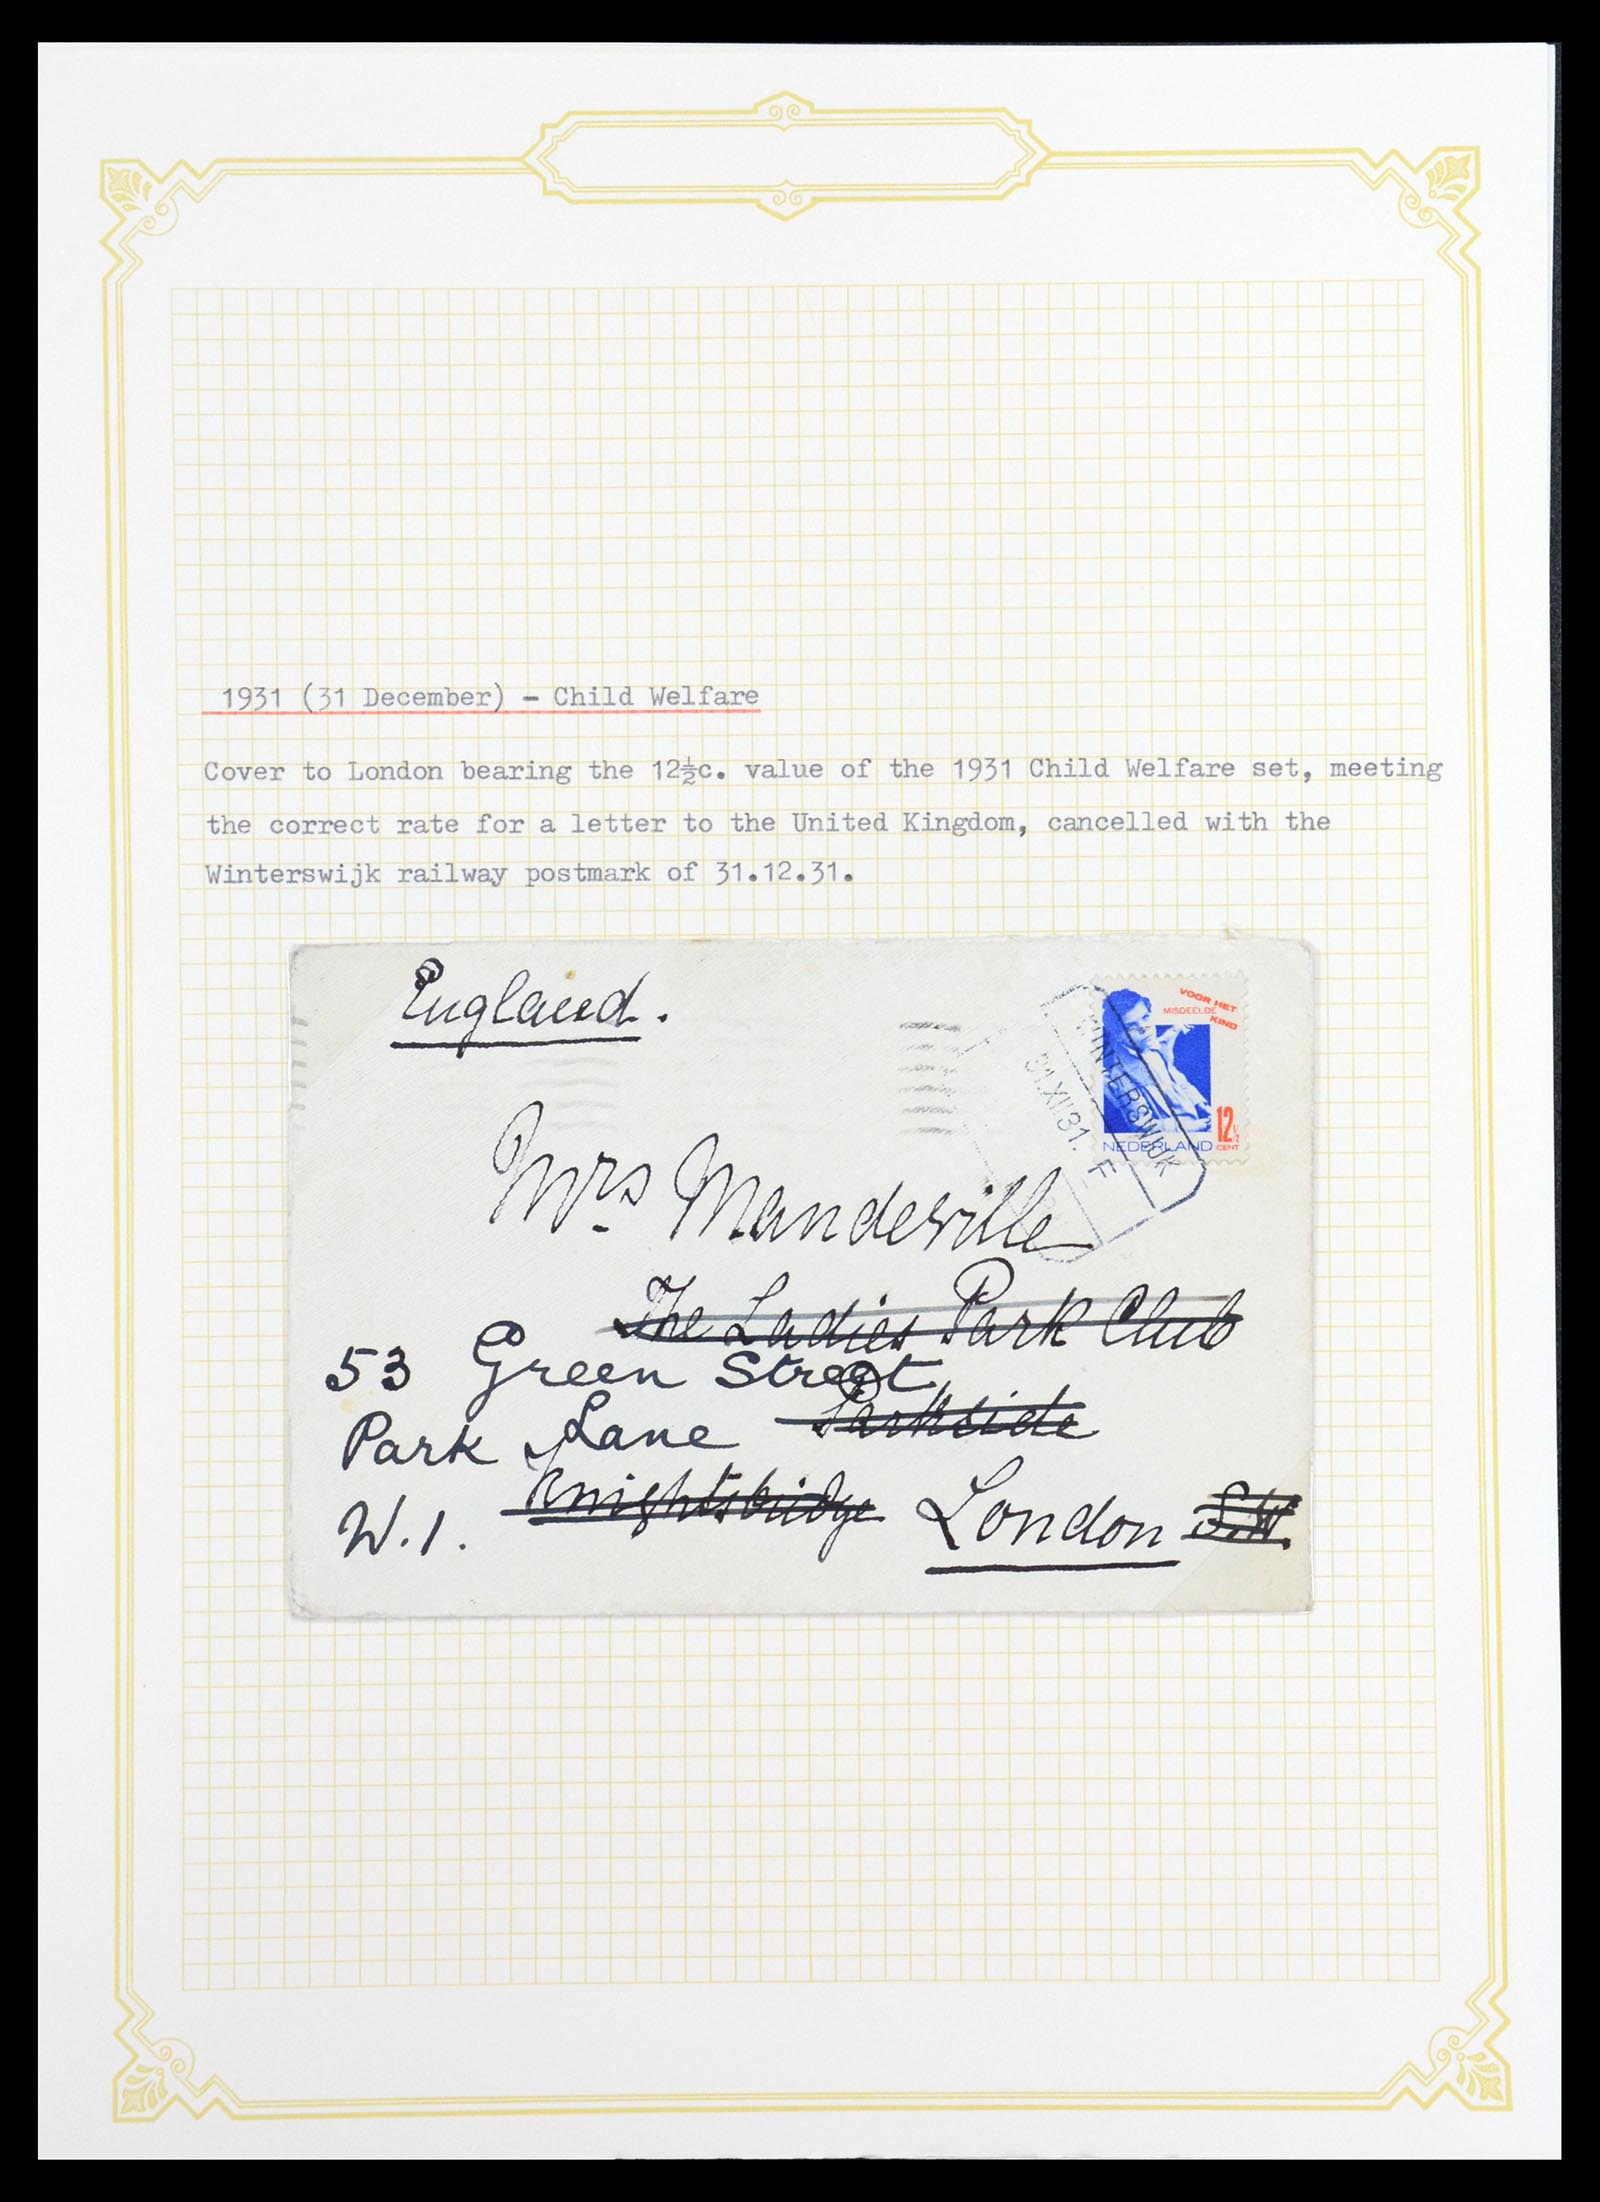 1931 (31 December) – Child Welfare
Cover to London bearing the 12½c. value of the 1931 Child Welfare set, meeting
the correct rate for a letter to the United Kingdom, cancelled with the
Winterswijk railway postmark of 31.12.31.
England.
VOOR HET
MISDEELDE
KIND
WINTERSWIJK
31.XII31. F
12½
NEDERLAND CENT
Mrs Mandeville
The Ladies Park Club
53 Green Street
Parkside
Park Lane
Knightsbridge London S.W.
W.1.